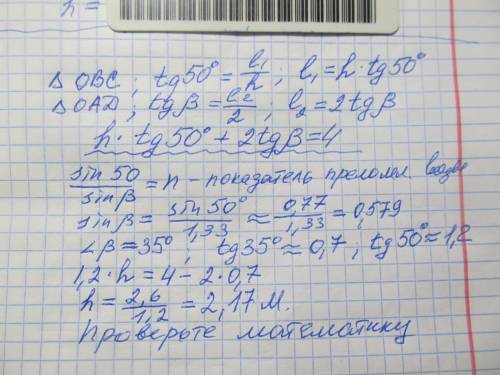 h =
Δ OBC; tg50° = l₁/h; l₁ = h·tg50°
Δ OAD; tgβ = l₂/2; l₂ = 2tgβ
h·tg50° + 2tgβ = 4
sin 50/sinβ = n - показатель преломл.
sinβ = sin 50°/1,33 ≈ 0,77/1,33 = 0,579
∠β = 35°; tg35° ≈ 0,7; tg50° ≈ 1,2
1,2·h = 4 - 2·0,7
h = 2,6/1,2 = 2,17 м.
Проверьте математику